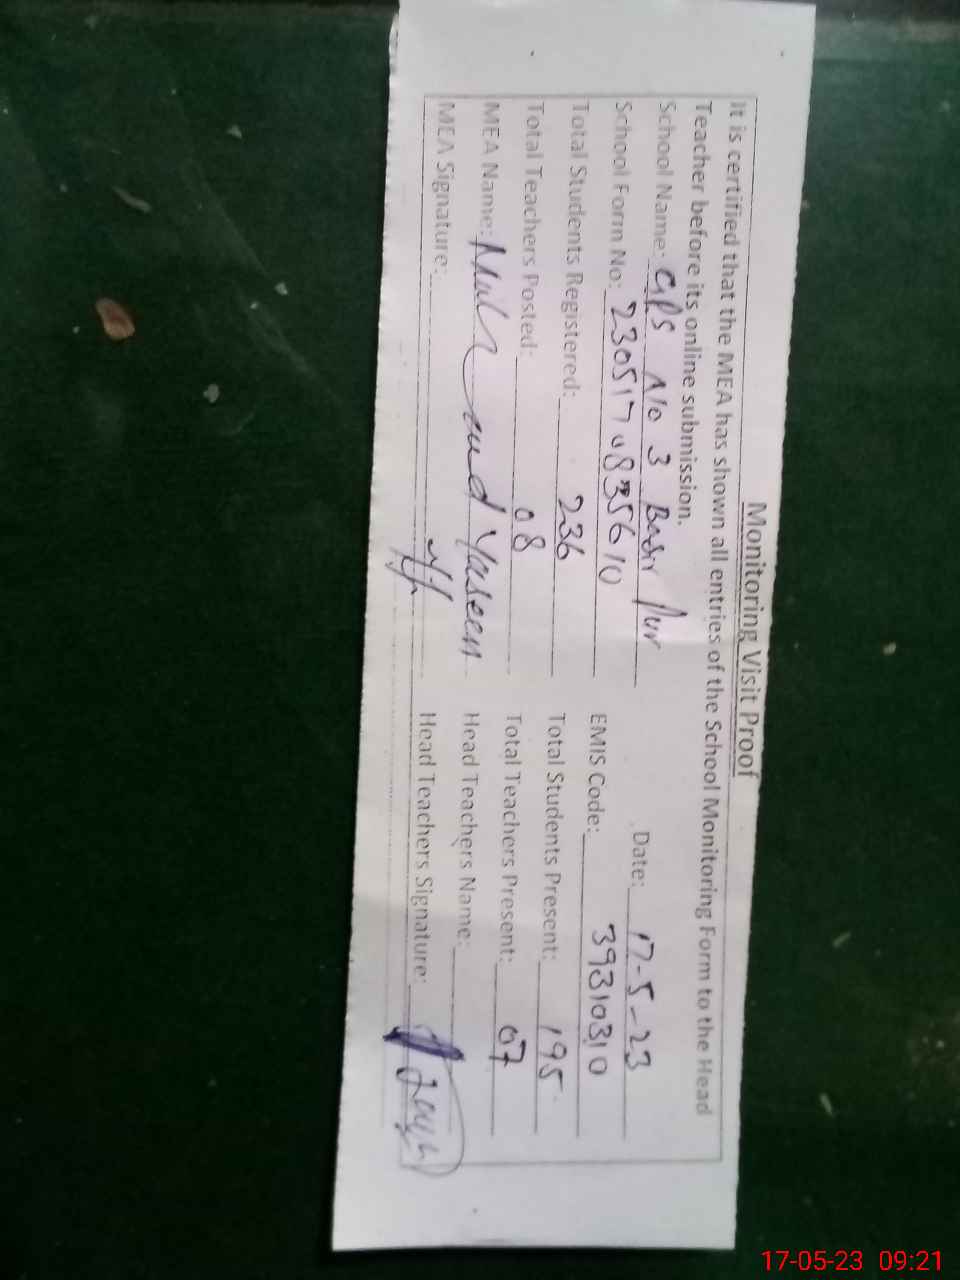 Monitoring Visit Proof
It is certified that the MEA has shown all entries of the School Monitoring Form to the Head
Teacher before its online submission.
School Name: GPS No 3 Basir Pur Date: 17-5-23
School Form No: 2305170835610 EMIS Code: 39310310
Total Students Registered: 236 Total Students Present: 195
Total Teachers Posted: 08 Total Teachers Present: 07
MEA Name: Yaseen Head Teachers Name:
MEA Signature: Head Teachers Signature:
17-05-23 09:21